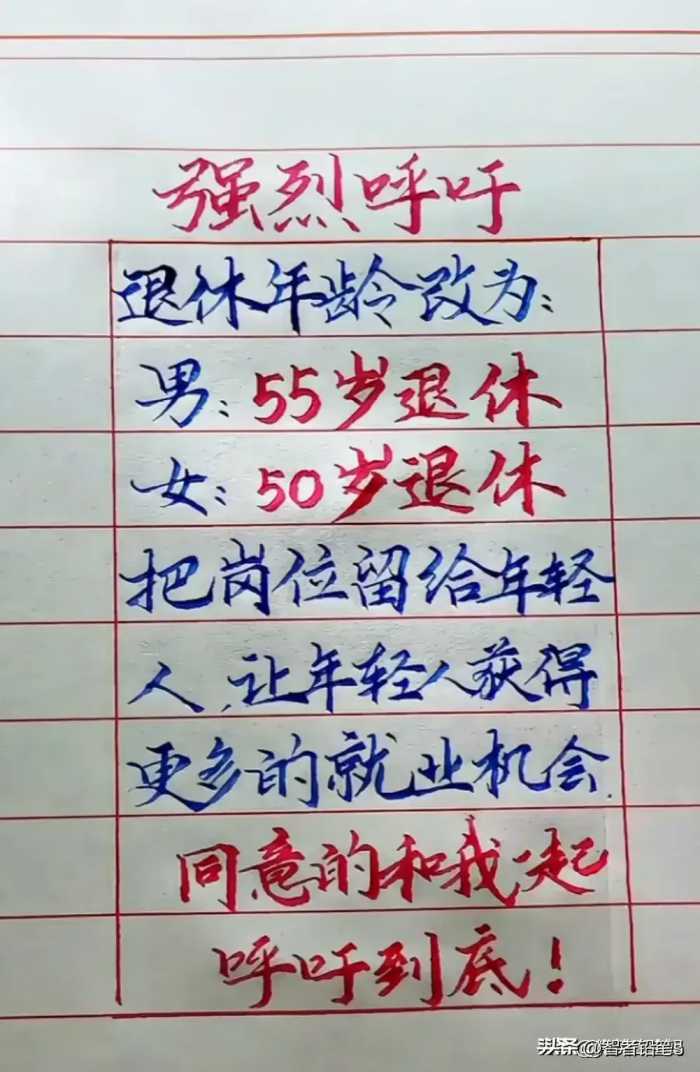 强烈呼吁
退休年龄改为：
男：55岁退休
女：50岁退休
把岗位留给年轻
人，让年轻人获得
更多的就业机会.
同意的和我一起
呼吁到底！
头条@智者铅笔